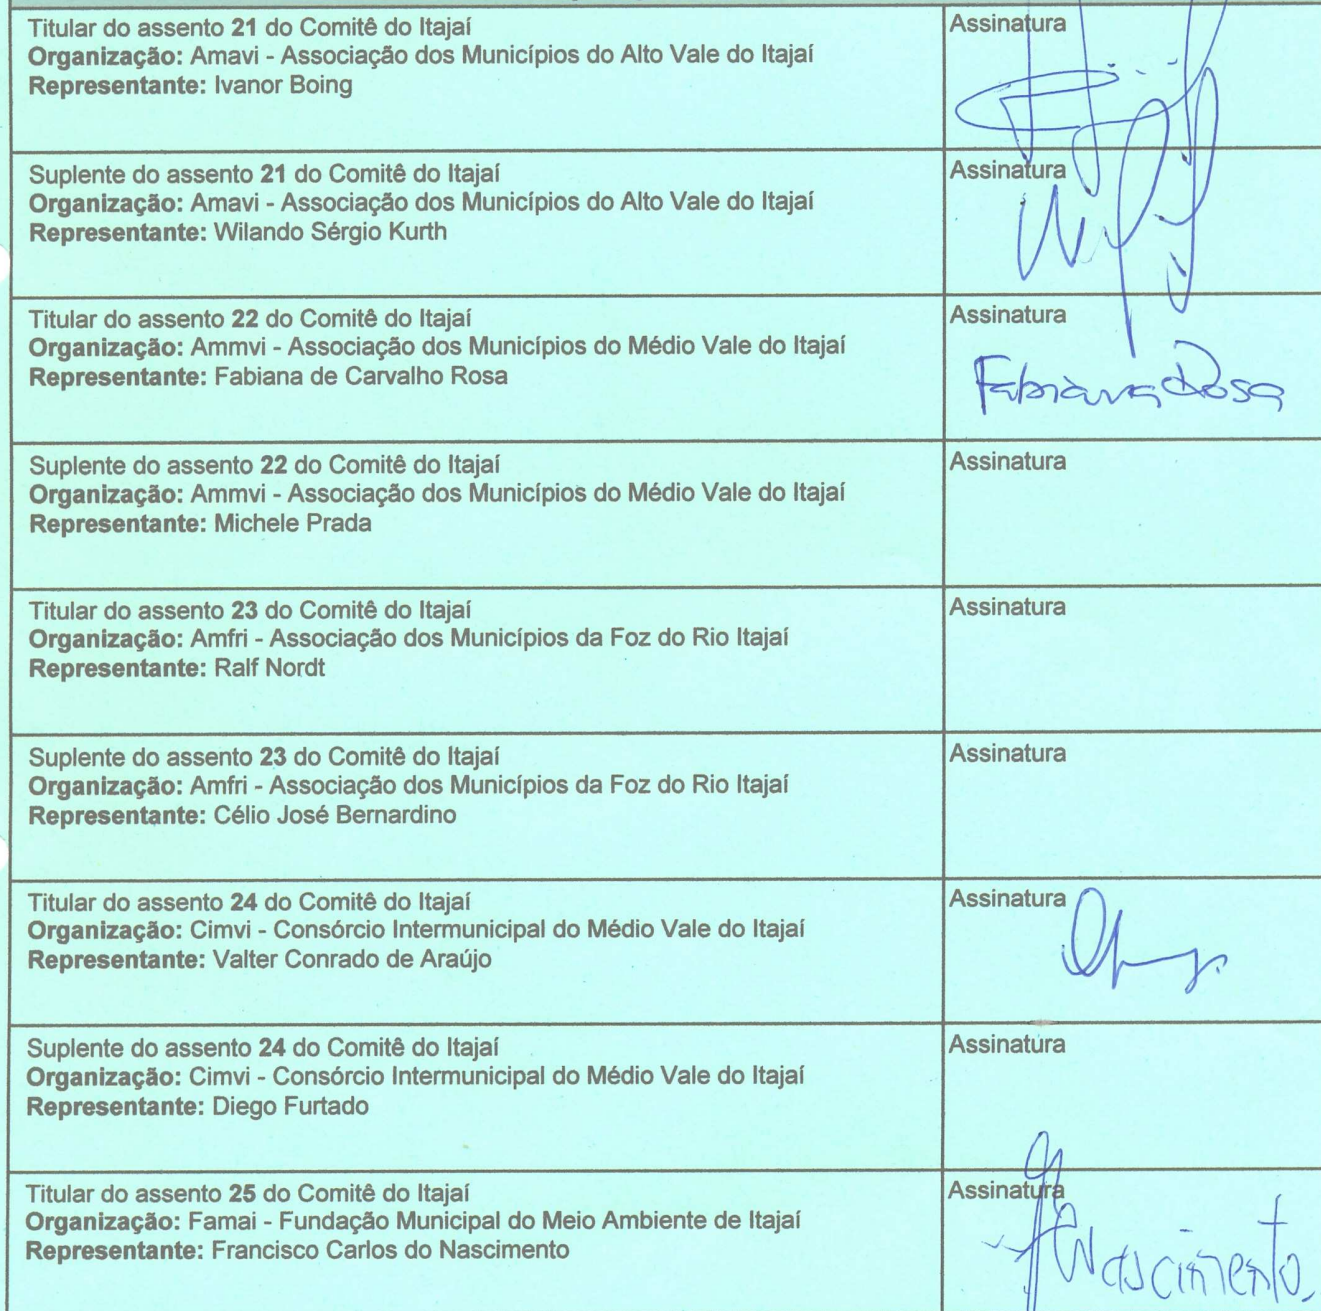 Titular do assento 21 do Comitê do Itajaí
Organização: Amavi - Associação dos Municípios do Alto Vale do Itajaí
Representante: Ivanor Boing
Assinatura
Suplente do assento 21 do Comitê do Itajaí
Organização: Amavi - Associação dos Municípios do Alto Vale do Itajaí
Representante: Wilando Sérgio Kurth
Assinatura
Titular do assento 22 do Comitê do Itajaí
Organização: Ammvi - Associação dos Municípios do Médio Vale do Itajaí
Representante: Fabiana de Carvalho Rosa
Assinatura
Fabiana Rosa
Suplente do assento 22 do Comitê do Itajaí
Organização: Ammvi - Associação dos Municípios do Médio Vale do Itajaí
Representante: Michele Prada
Assinatura
Titular do assento 23 do Comitê do Itajaí
Organização: Amfri - Associação dos Municípios da Foz do Rio Itajaí
Representante: Ralf Nordt
Assinatura
Suplente do assento 23 do Comitê do Itajaí
Organização: Amfri - Associação dos Municípios da Foz do Rio Itajaí
Representante: Célio José Bernardino
Assinatura
Titular do assento 24 do Comitê do Itajaí
Organização: Cimvi - Consórcio Intermunicipal do Médio Vale do Itajaí
Representante: Valter Conrado de Araújo
Assinatura
Suplente do assento 24 do Comitê do Itajaí
Organização: Cimvi - Consórcio Intermunicipal do Médio Vale do Itajaí
Representante: Diego Furtado
Assinatura
Titular do assento 25 do Comitê do Itajaí
Organização: Famai - Fundação Municipal do Meio Ambiente de Itajaí
Representante: Francisco Carlos do Nascimento
Assinatura
Nascimento